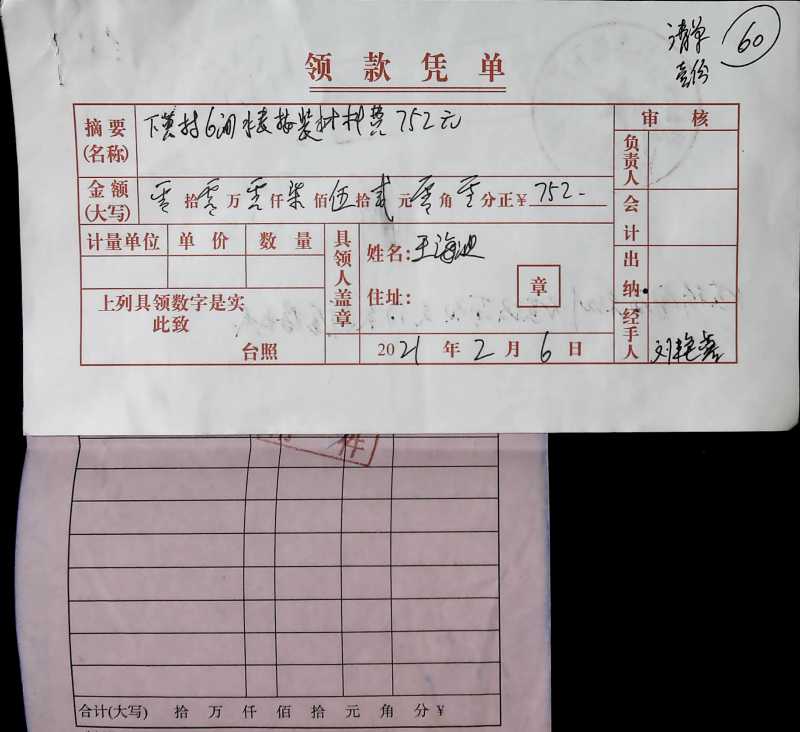 清单
壹份
60
领款凭单
摘要
(名称)
下黄村6泗 水表 安装材料费752元
审核
负责人
金额
(大写)
零拾零万零仟柒佰伍拾贰元零角零分正¥752-
会计
计量单位 单价 数量
具领人盖章
姓名:王海池
住址:
章
出纳
上列具领数字是实
此致
台照
2021年2月6日
经手人
刘艳鑫
件
合计(大写) 拾 万 仟 佰 拾 元 角 分¥